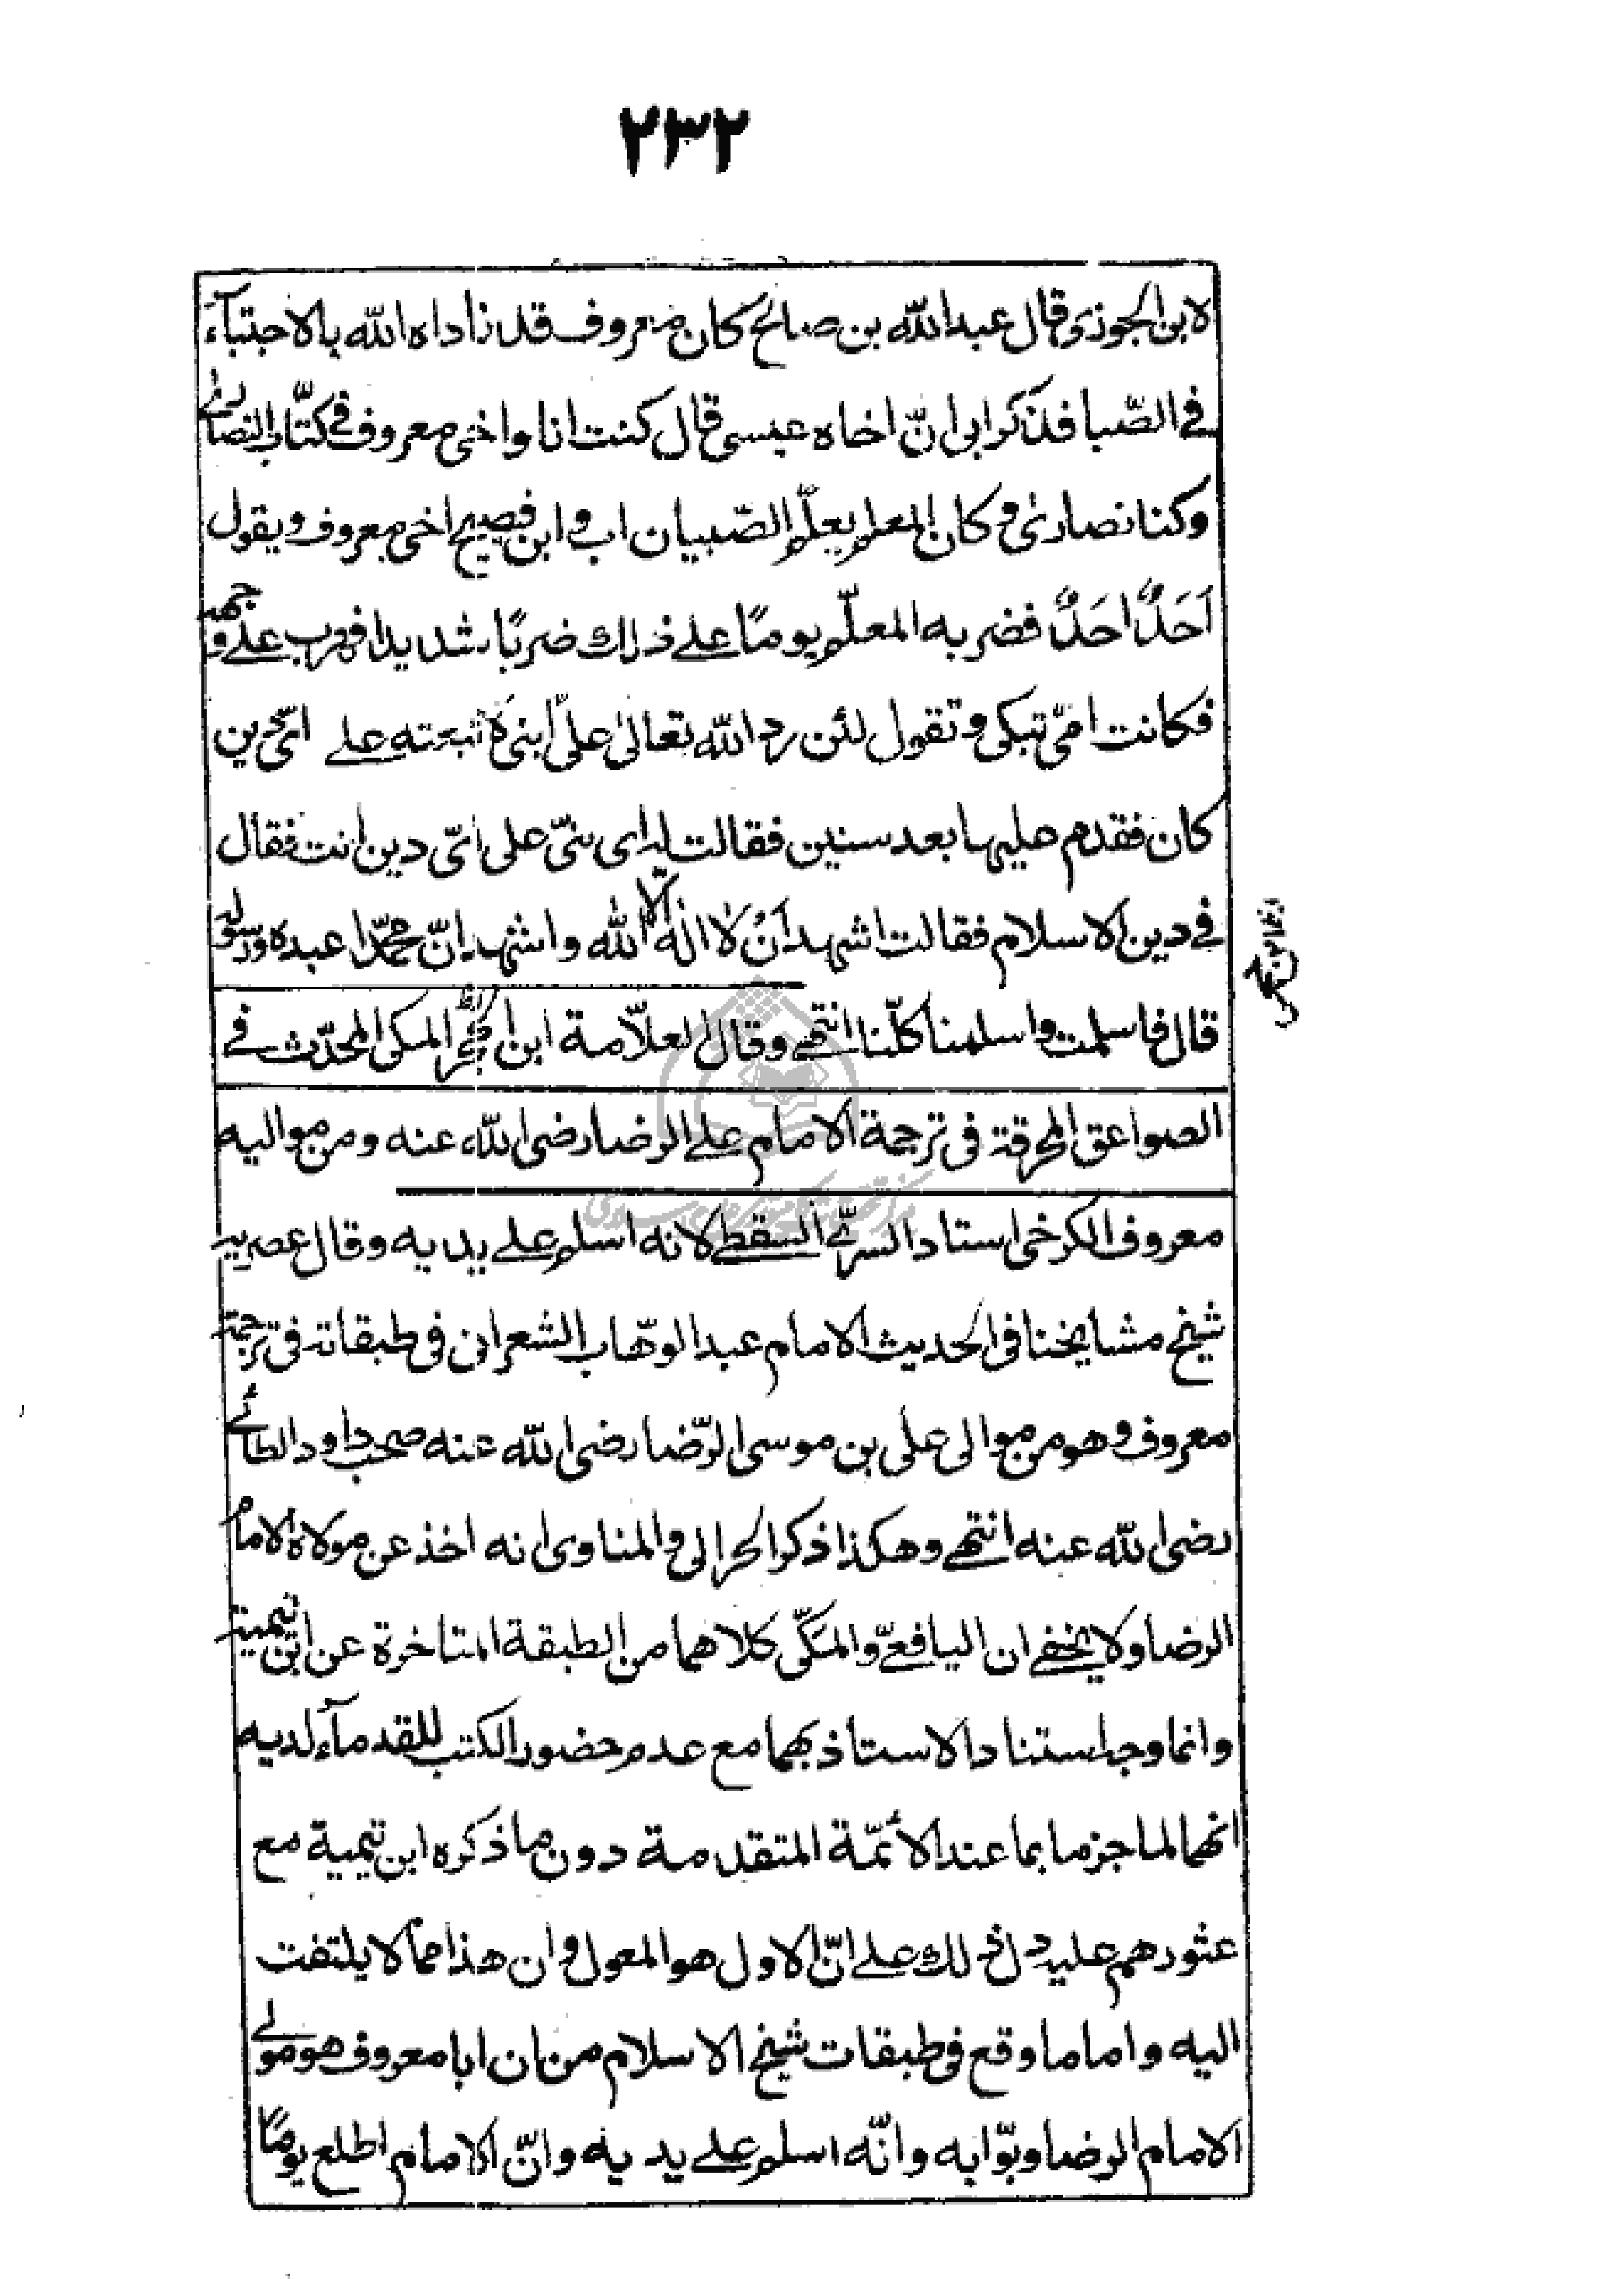 ٢٣٢
لابن الجوزى وقال عبد الله بن صالح كان معروف قد ناداه الله بالاجتبآء
فى الصّبا فذكر ابى انّ اخاه عيسى قال كنت انا واخى معروف فى كتّاب النصارى
وكنا نصارىٰ وكان المعلم يعلّم الصّبيان اب وابن فصيح اخى معروف ويقول
اَحَدٌ احَدٌ فضربه المعلّم يومًا على ذلك ضربًا شديدا فهرب على وجهه
فكانت امّى تبكى وتقول لئن رد الله تعالىٰ علىّ ابنى تبعته على اىّ دين
كان فقدم عليها بعد سنين فقالت له اى بنىّ على اىّ دين انت فقال
فى دين الاسلام فقالت اشهد اَنْ لا اله الّا الله واشهد انّ محمّدا عبده ورسوله
قال فاسلمت واسلمنا كلّنا انتهى وقال العلّامة ابن حجر المكى المحدّث فى
الصواعق المحرقة فى ترجمة الامام على الرضا رضى الله عنه ومن مواليه
معروف الكرخى استاد السرىّ السقطى لانه اسلم على يديه وقال عصريه
شيخ مشايخنا فى الحديث الامام عبد الوهّاب الشعرانى فى طبقاته فى ترجمة
معروف وهو من موالى على بن موسى الرّضا رضى الله عنه صحب داود الطائى
رضى الله عنه انتهى وهكذا ذكر الحرالى والمناوى انه اخذ عن مولاه الامام
الرضا ولا يخفى ان اليافعىّ والمكّى كلاهما من الطبقة المتاخرة عن ابن تيمية
وانما وجه استناد الاستاذ بهما مع عدم حضور الكتب للقدمآء لديه
انهما لما جزما بما عند الأئمّة المتقدمة دون ما ذكره ابن تيمية مع
عثورهم عليه دل ذلك على انّ الاول هو المعول وان هذا ممّا لا يلتفت
اليه واما ما وقع فى طبقات شيخ الاسلام من ان ابا معروف هو مولى
الامام الرضا وبوّابه وانّه اسلم على يديه وانّ الامام اطلع يومًا